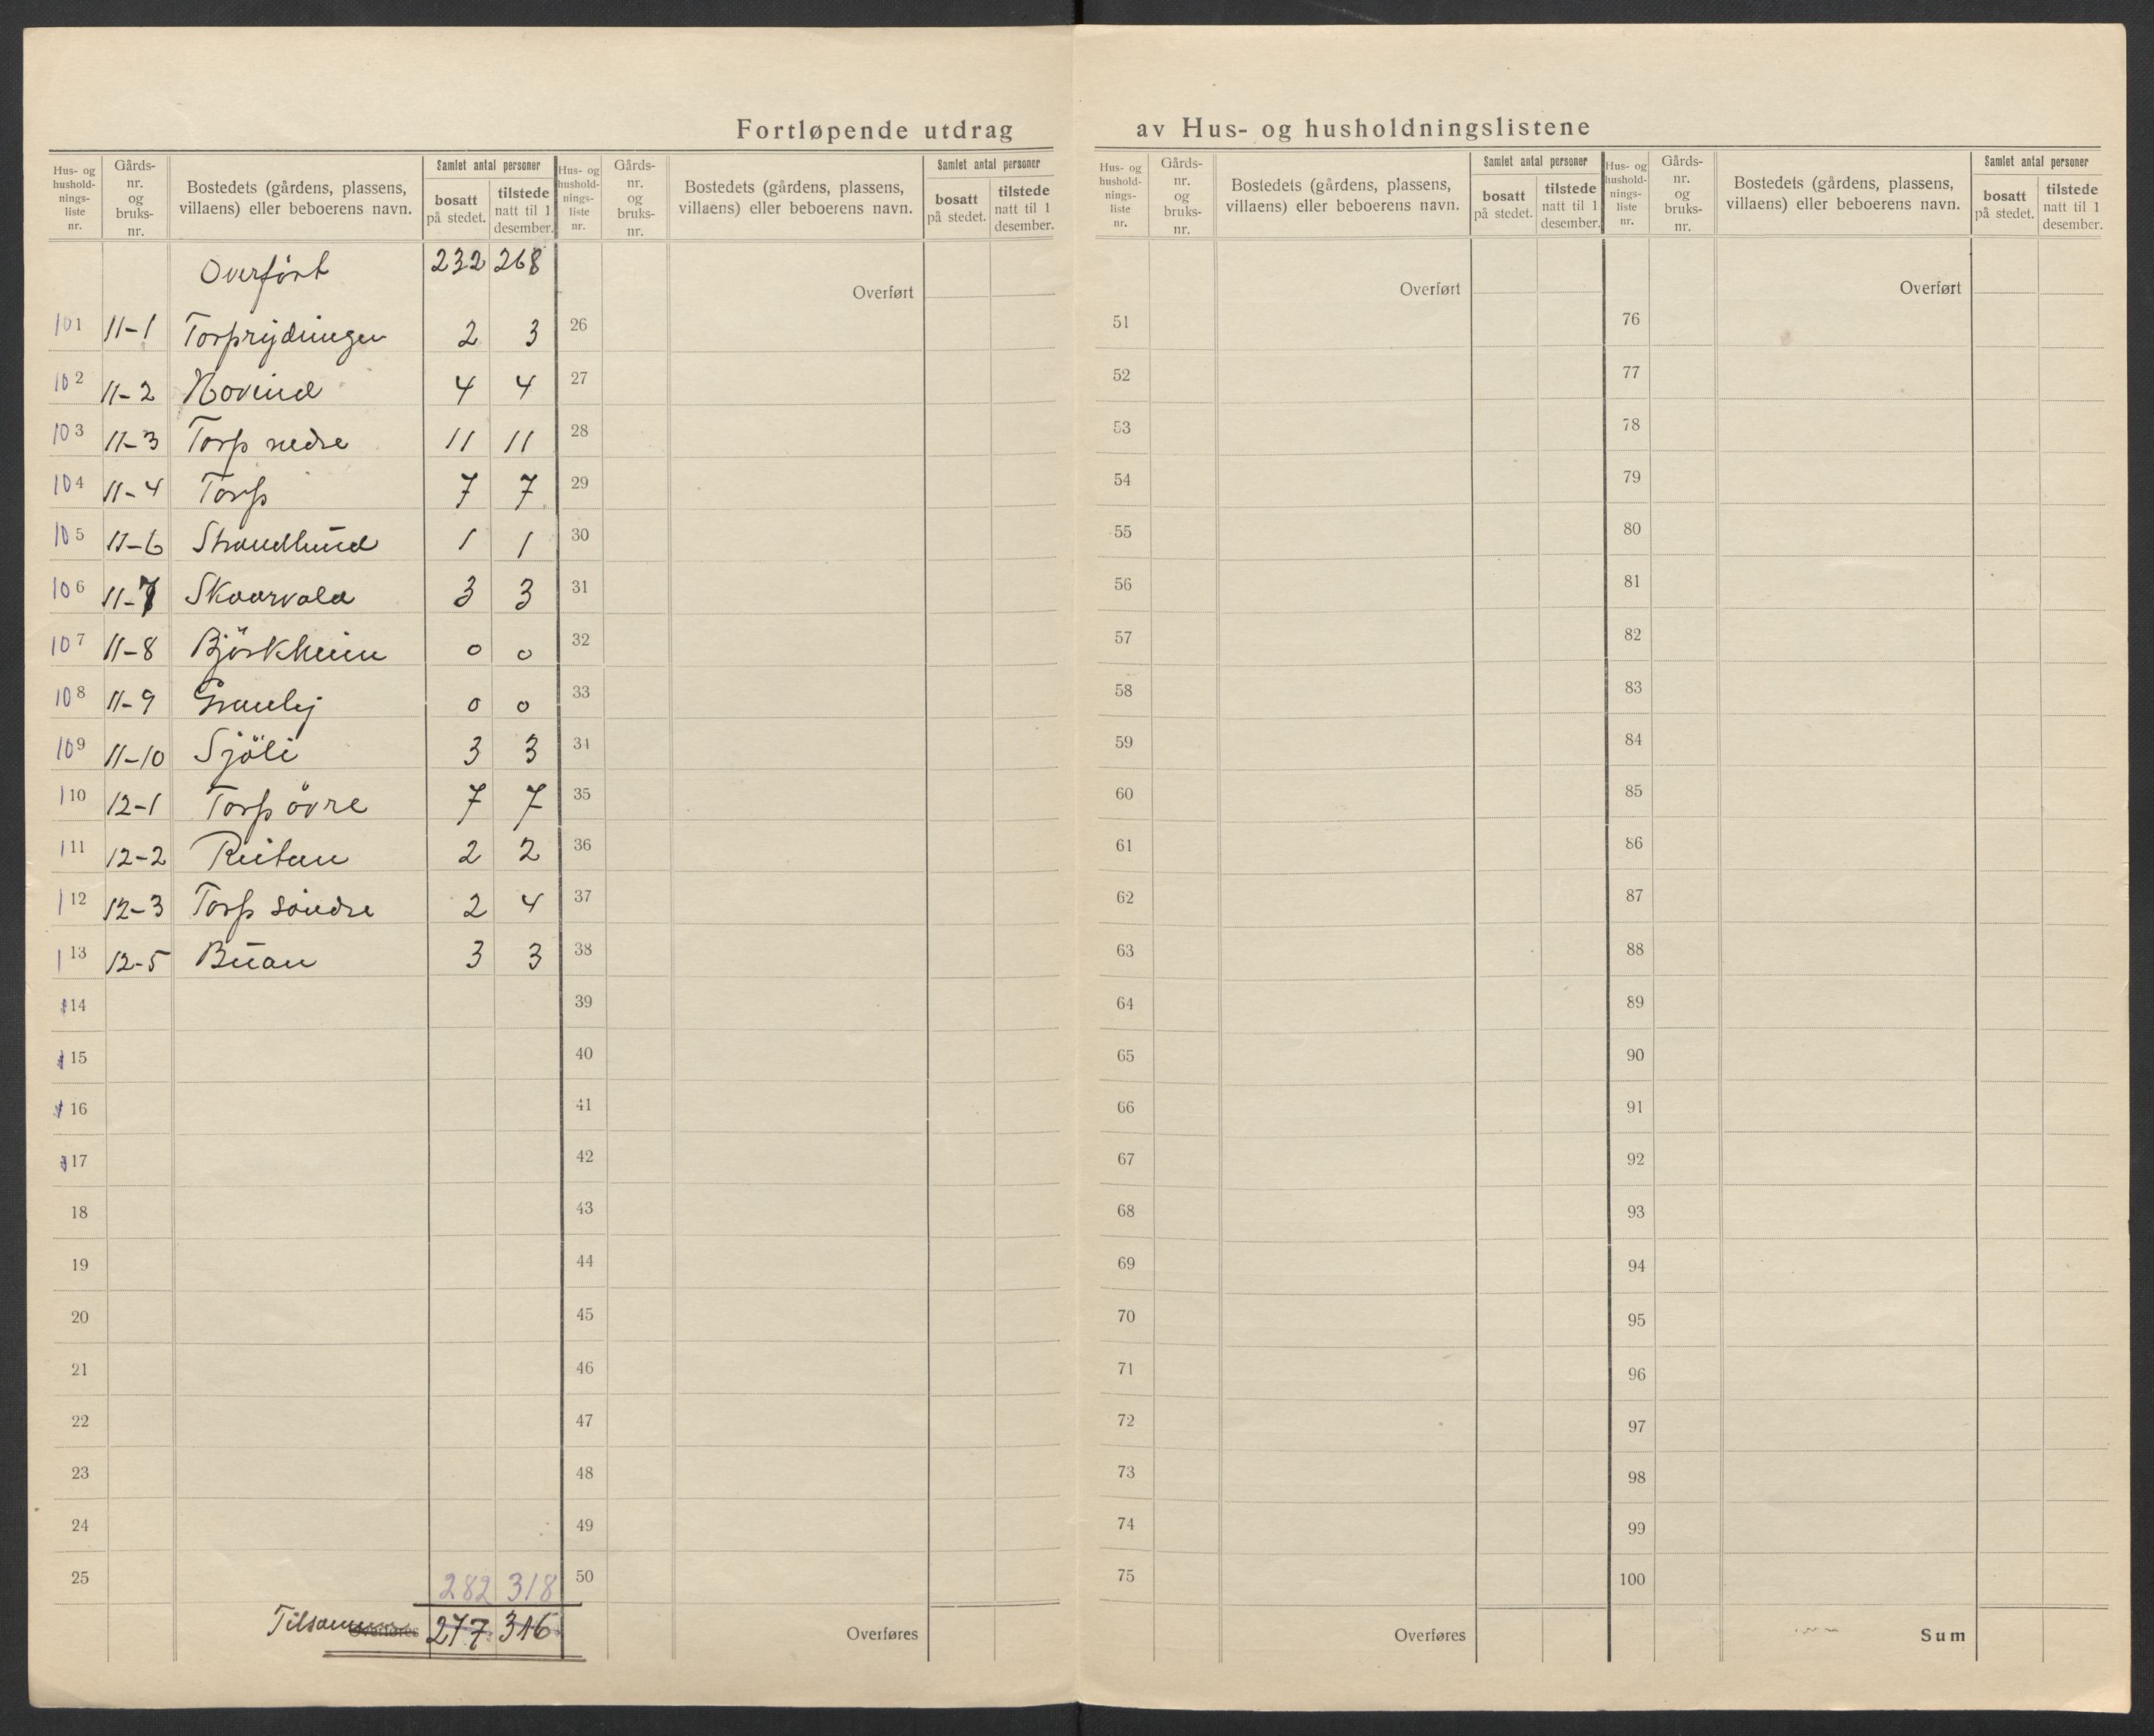 Fortløpende utdrag av Hus- og husholdningslistene
Hus- og hushold-nings-liste nr. | Gårds-nr. og bruks-nr. | Bostedets (gårdens, plassens, villaens) eller beboerens navn. | Samlet antal personer | bosatt på stedet. | tilstede natt til 1 desember.
Overført 232 268
101 11-1 Torprydningen 2 3
102 11-2 Hovind 4 4
103 11-3 Torp nedre 11 11
104 11-4 Torp 7 7
105 11-6 Strandlund 1 1
106 11-7 Skaarvold 3 3
107 11-8 Björkheim 0 0
108 11-9 Granlij 0 0
109 11-10 Sjöli 3 3
110 12-1 Torp övre 7 7
111 12-2 Reitan 2 2
112 12-3 Torp söndre 2 4
113 12-5 Buan 3 3
14
15
16
17
18
19
20
21
22
23
24
25 282 318
Tilsam Overføres 277 316
Hus- og hushold-nings-liste nr. | Gårds-nr. og bruks-nr. | Bostedets (gårdens, plassens, villaens) eller beboerens navn. | Samlet antal personer | bosatt på stedet. | tilstede natt til 1 desember.
Overført
26
27
28
29
30
31
32
33
34
35
36
37
38
39
40
41
42
43
44
45
46
47
48
49
50
Overføres
Hus- og hushold-nings-liste nr. | Gårds-nr. og bruks-nr. | Bostedets (gårdens, plassens, villaens) eller beboerens navn. | Samlet antal personer | bosatt på stedet. | tilstede natt til 1 desember.
Overført
51
52
53
54
55
56
57
58
59
60
61
62
63
64
65
66
67
68
69
70
71
72
73
74
75
Overføres
Hus- og hushold-nings-liste nr. | Gårds-nr. og bruks-nr. | Bostedets (gårdens, plassens, villaens) eller beboerens navn. | Samlet antal personer | bosatt på stedet. | tilstede natt til 1 desember.
Overført
76
77
78
79
80
81
82
83
84
85
86
87
88
89
90
91
92
93
94
95
96
97
98
99
100
Sum